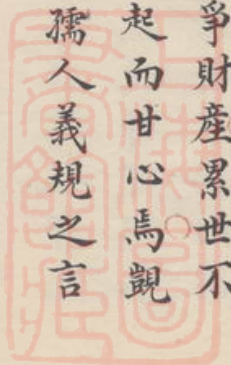 爭財產累世不
起而甘心焉覬
孺人義規之言